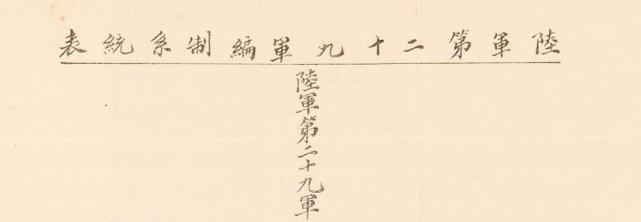 陸軍第二十九軍編制系統表
陸軍第二十九軍